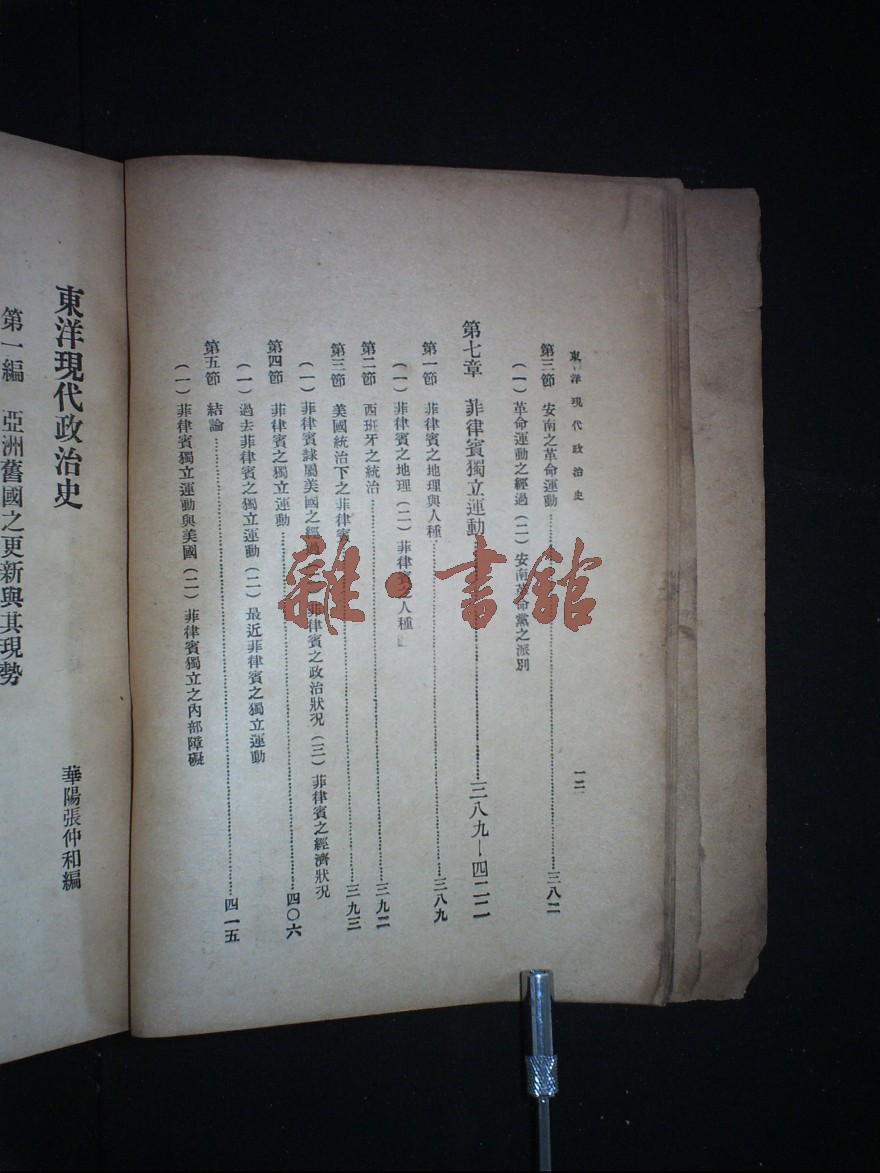 東洋現代政治史
一二
第三節 安南之革命運動…………三八二
(一)革命運動之經過(二)安南革命黨之派別
第七章 菲律賓獨立運動…………三八九—四二二
第一節 菲律賓之地理與人種…………三八九
(一)菲律賓之地理(二)菲律賓之人種
第二節 西班牙之統治…………三九二
第三節 美國統治下之菲律賓…………三九三
(一)菲律賓隸屬美國之經過(二)菲律賓之政治狀況(三)菲律賓之經濟狀況
第四節 菲律賓之獨立運動…………四〇六
(一)過去菲律賓之獨立運動(二)最近菲律賓之獨立運動
第五節 結論…………四一五
(一)菲律賓獨立運動與美國(二)菲律賓獨立之內部障礙
東洋現代政治史
華陽張仲和編
第一編 亞洲舊國之更新與其現勢
雜·書館